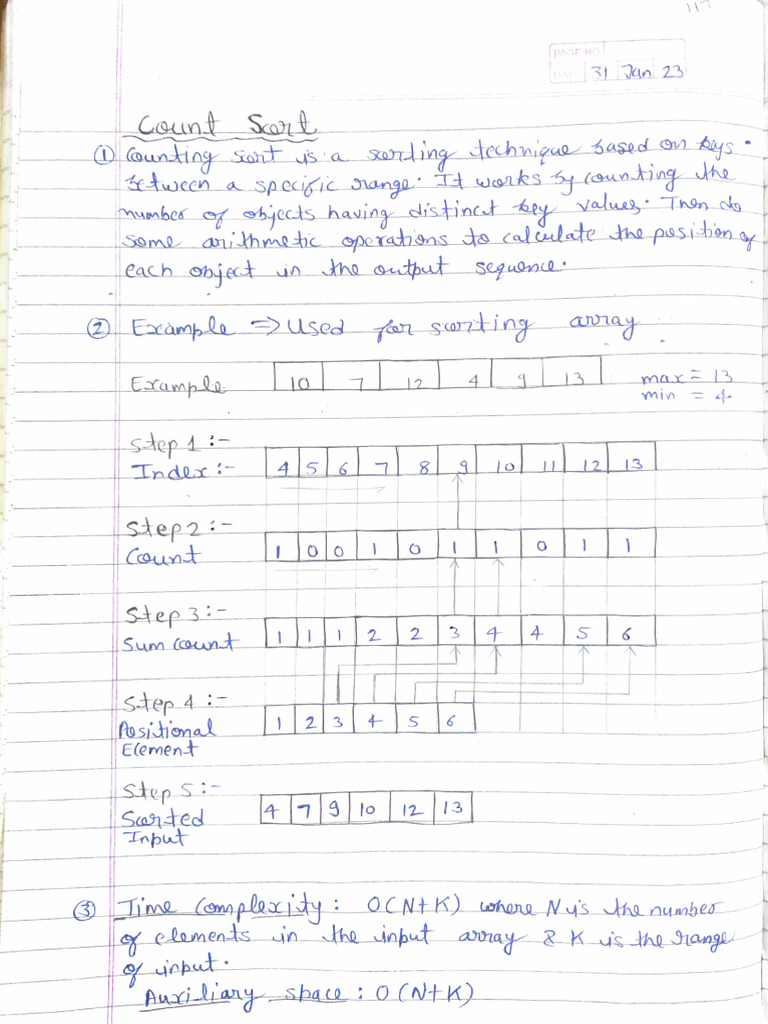 117
PAGE NO
DATE 31 Jan 23
Count Sort
① Counting sort is a sorting technique based on keys
between a specific range. It works by counting the
number of objects having distinct key values. Then do
some arithmetic operations to calculate the position of
each object in the output sequence.
② Example ⇒ Used for sorting array
Example 10 7 12 4 9 13 max = 13
min = 4
Step 1 :-
Index :- 4 5 6 7 8 9 10 11 12 13
Step 2 :-
Count 1 0 0 1 0 1 1 0 1 1
Step 3 :-
Sum Count 1 1 1 2 2 3 4 4 5 6
Step 4 :-
Positional 1 2 3 4 5 6
Element
Step 5 :-
Sorted 4 7 9 10 12 13
Input
③ Time Complexity : O(N+K) where N is the number
of elements in the input array & K is the range
of input.
Auxiliary space : O(N+K)